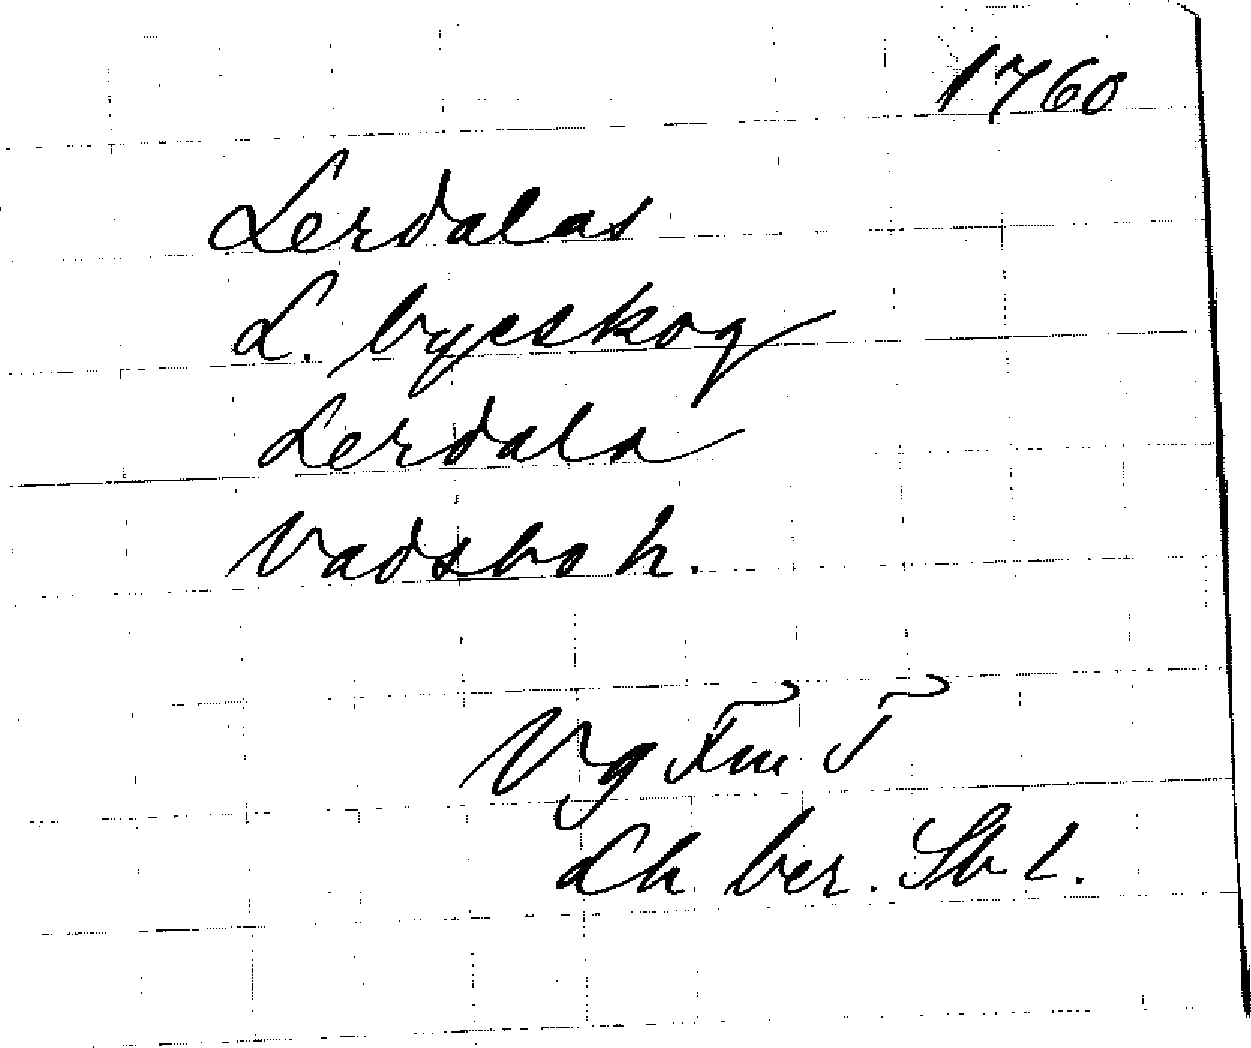 1760
Lerdalas
L. byeskog
Lerdala
Vadsbo h.
Vg Fm T
Lh ber. Sb l.